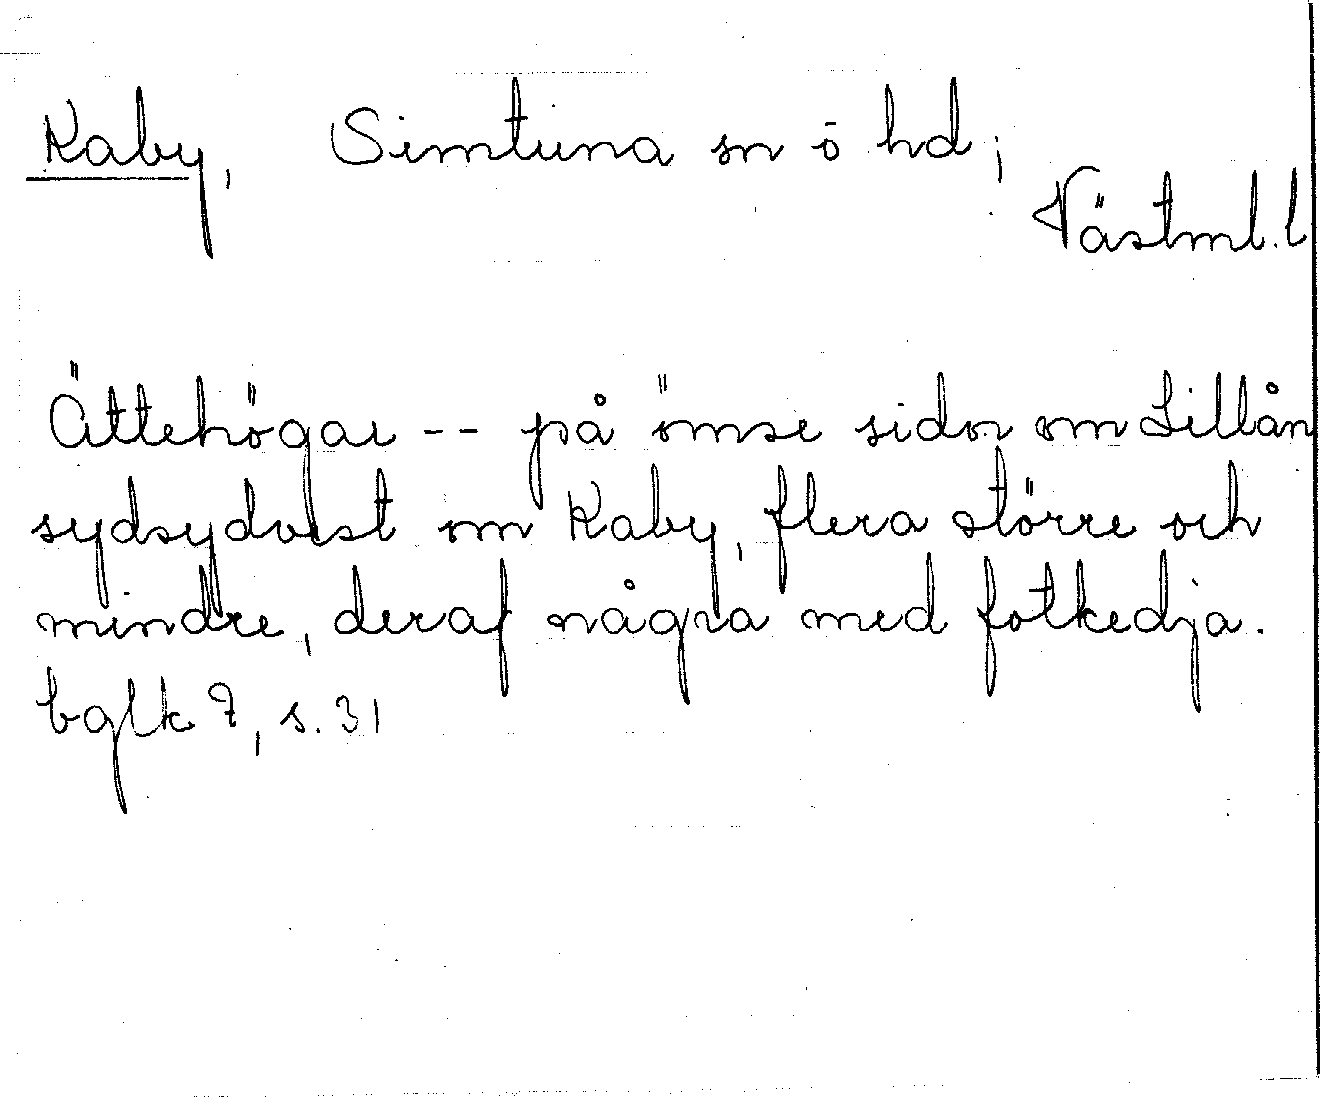 Kaby, Simtuna sn o hd;
Västml. l
Ättehögar -- på ömse sidor om Lillån
sydsydvest om Kaby, flera större och
mindre, deraf några med fotkedja.
bglk 7, s. 31